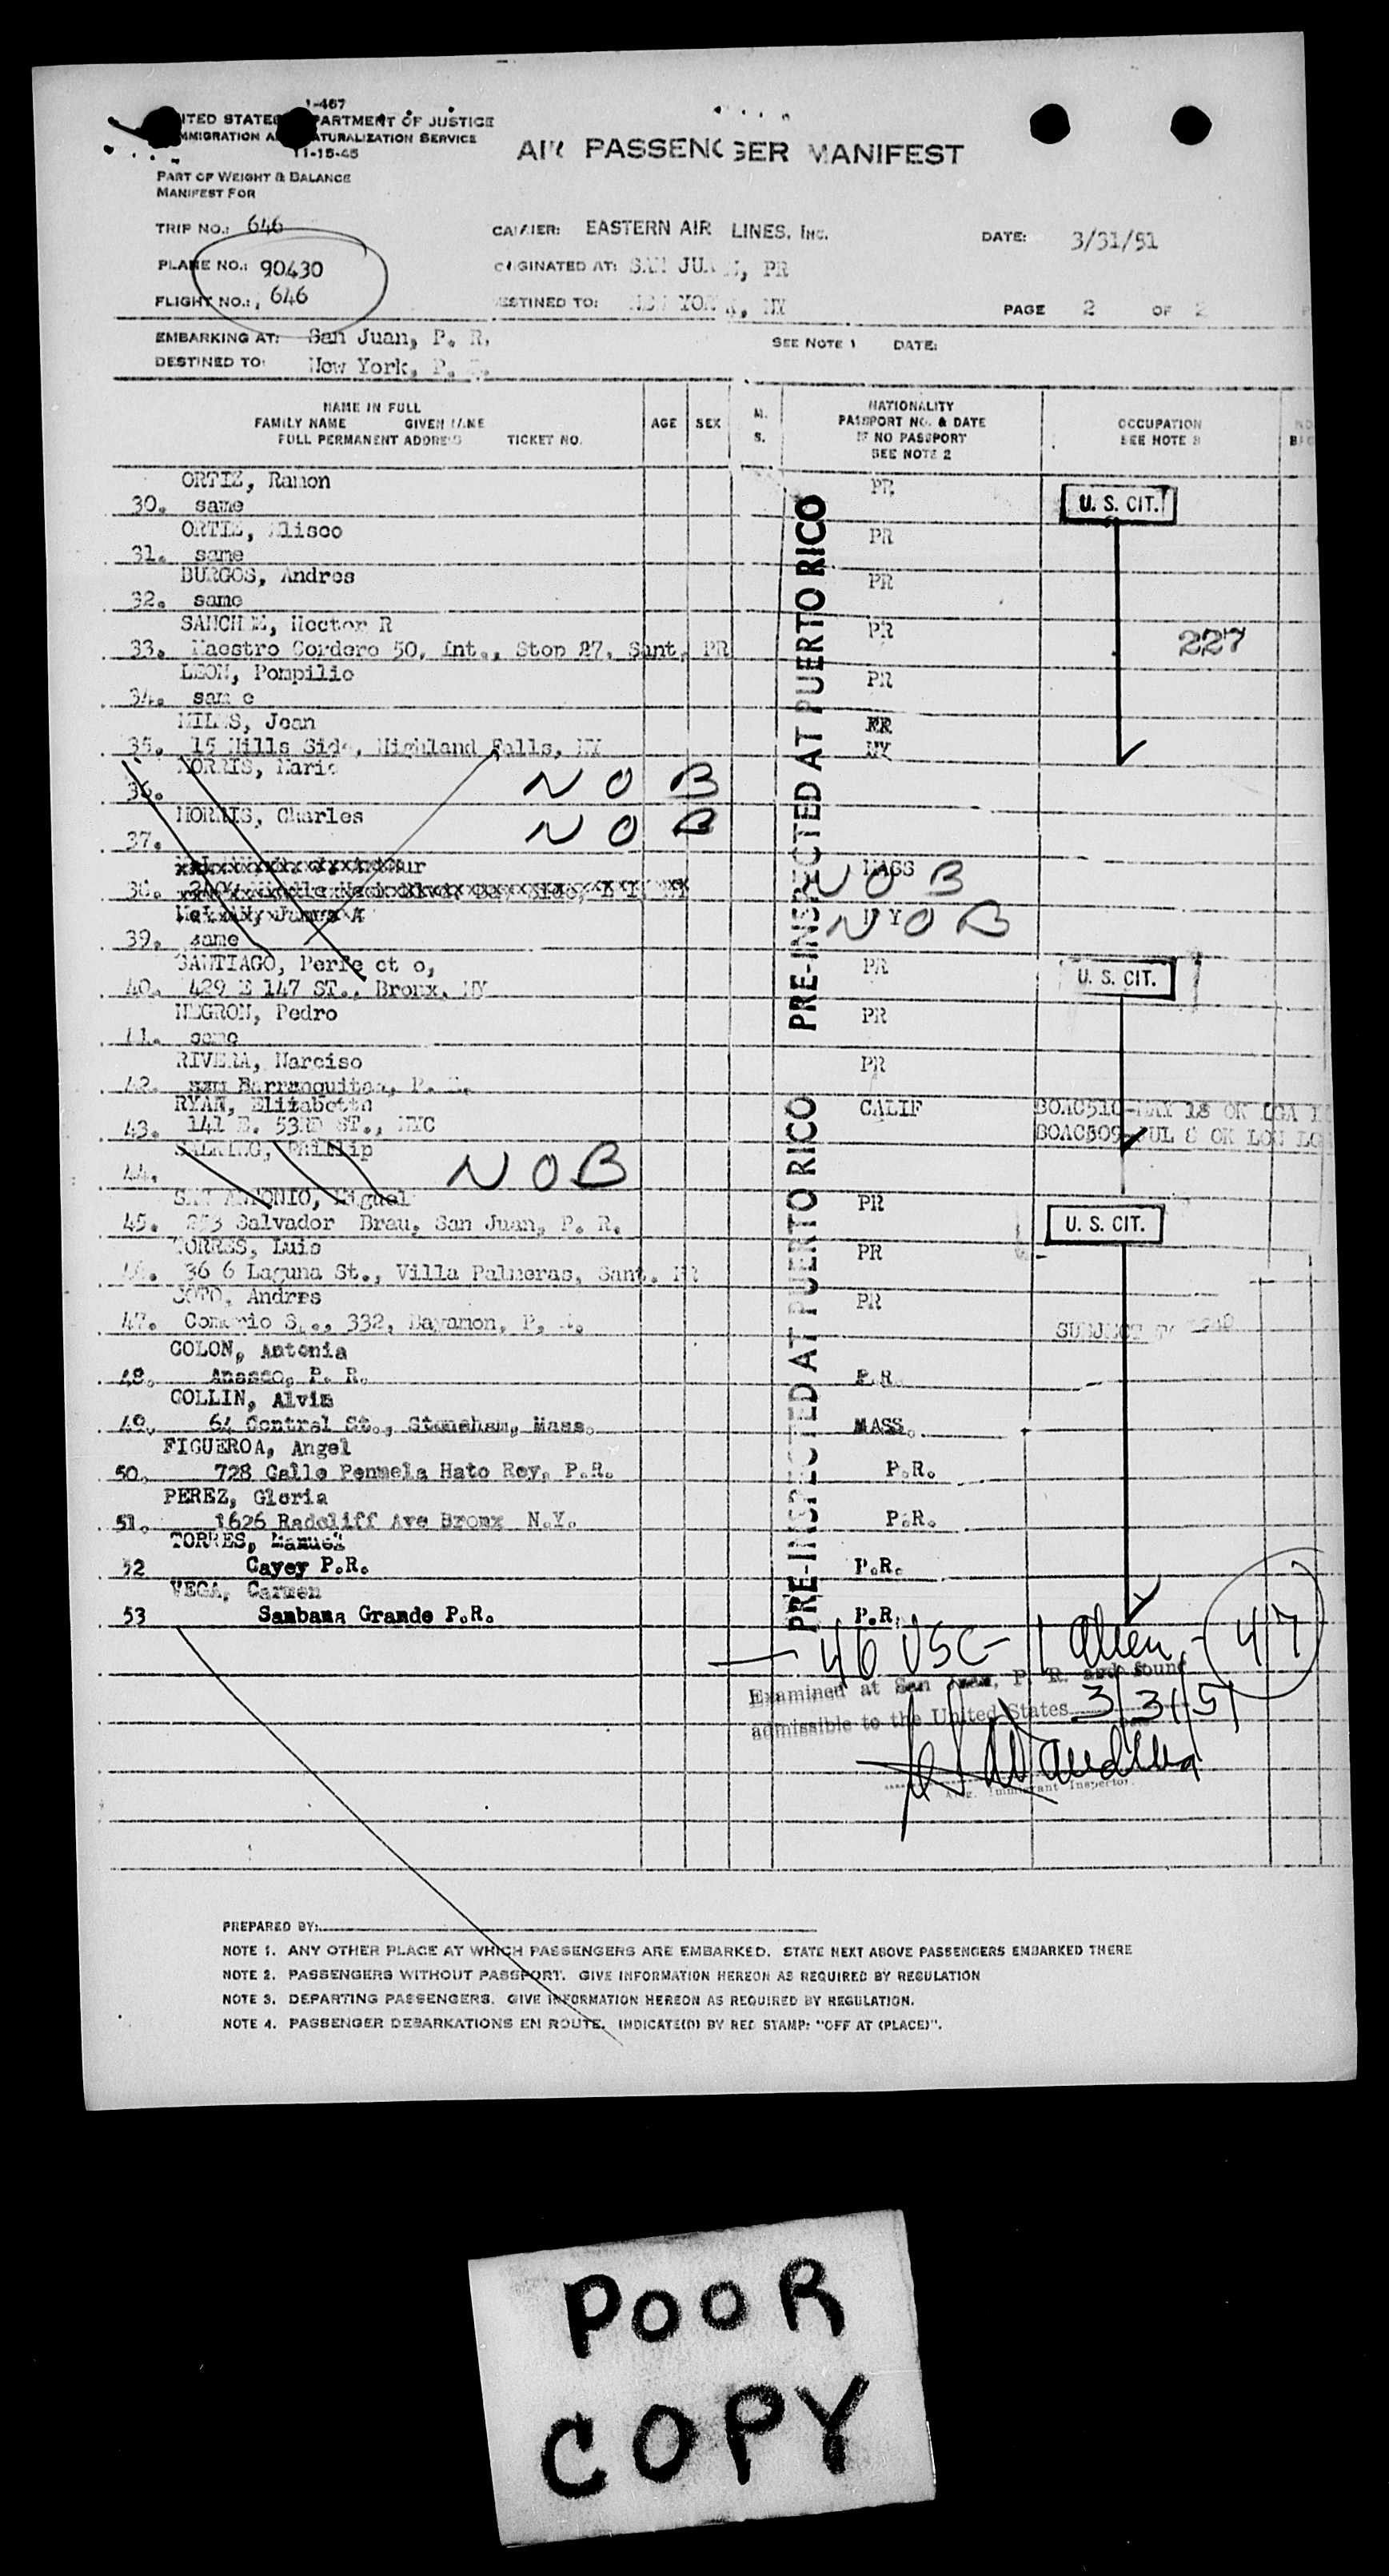 I-467
UNITED STATES DEPARTMENT OF JUSTICE
IMMIGRATION AND NATURALIZATION SERVICE
11-15-45
AIR PASSENGER MANIFEST
PART OF WEIGHT & BALANCE
MANIFEST FOR
TRIP NO.: 646
CARRIER: EASTERN AIR LINES, INC.
DATE: 3/31/51
PLANE NO.: 90430
ORIGINATED AT: SAN JUAN, PR
FLIGHT NO.: 646
DESTINED TO: NEW YORK, NY
PAGE 2 OF 2
EMBARKING AT: San Juan, P. R.
SEE NOTE 1 DATE:
DESTINED TO: New York, P.
NAME IN FULL
FAMILY NAME GIVEN NAME
FULL PERMANENT ADDRESS TICKET NO.
AGE SEX
M.
S.
NATIONALITY
PASSPORT NO. & DATE
IF NO PASSPORT
SEE NOTE 2
OCCUPATION
SEE NOTE 3
PRE-INSPECTED AT PUERTO RICO
ORTIZ, Ramon PR
30. same U. S. CIT.
ORTIZ, Eliseo PR
31. same
BURGOS, Andres PR
32. same
SANCHEZ, Hector R PR
33. Maestro Cordero 50, Int., Stop 27, Sant, PR 227
LEON, Pompilio PR
34. sam e
MILES, Jean
35. 15 Hills Side, Highland Falls, NY NY
MORRIS, Marie
36. N O B
MORRIS, Charles
37. N O B
MASS
38. N O B
N Y N O B
39. same
SANTIAGO, Perfe ct o, PR
40. 429 E 147 ST., Bronx, NY U. S. CIT.
NEGRON, Pedro PR
41. same
RIVERA, Narciso PR
42. Barranquitas, P. R.
RYAN, Elizabeth CALIF BOAC510-MAY 18 OK LGA
43. 141 E. 53RD ST., NYC BOAC509 JUL 8 OK LON
Phillip
44. N O B
PRE-INSPECTED AT PUERTO RICO
SAN ANTONIO, Miguel PR
45. 253 Salvador Brau, San Juan, P. R. U. S. CIT.
TORRES, Luis PR
46. 36 6 Laguna St., Villa Palmeras, Sant. PR
SOTO, Andres PR
47. Comerio St., 332, Bayamon, P. R. SUBJECT TO
COLON, Antonia
48. Anasco, P. R. P.R.
COLLIN, Alvin
49. 64 Central St., Stoneham, Mass. MASS.
FIGUEROA, Angel
50. 728 Calle Penmela Hato Rey, P.R. P.R.
PEREZ, Gloria
51. 1626 Radcliff Ave Bronx N.Y. P.R.
TORRES, Manuel
52 Cayey P.R. P.R.
VEGA, Carmen
53 Sambana Grande P.R. P.R.
46 USC - 1 Alien - 47
Examined at San Juan, P. R. and found
admissible to the United States 3/31/51
Immigrant Inspector.
PREPARED BY:
NOTE 1. ANY OTHER PLACE AT WHICH PASSENGERS ARE EMBARKED. STATE NEXT ABOVE PASSENGERS EMBARKED THERE
NOTE 2. PASSENGERS WITHOUT PASSPORT. GIVE INFORMATION HEREON AS REQUIRED BY REGULATION
NOTE 3. DEPARTING PASSENGERS. GIVE INFORMATION HEREON AS REQUIRED BY REGULATION.
NOTE 4. PASSENGER DEBARKATIONS EN ROUTE. INDICATE(D) BY RED STAMP: "OFF AT (PLACE)".
POOR
COPY